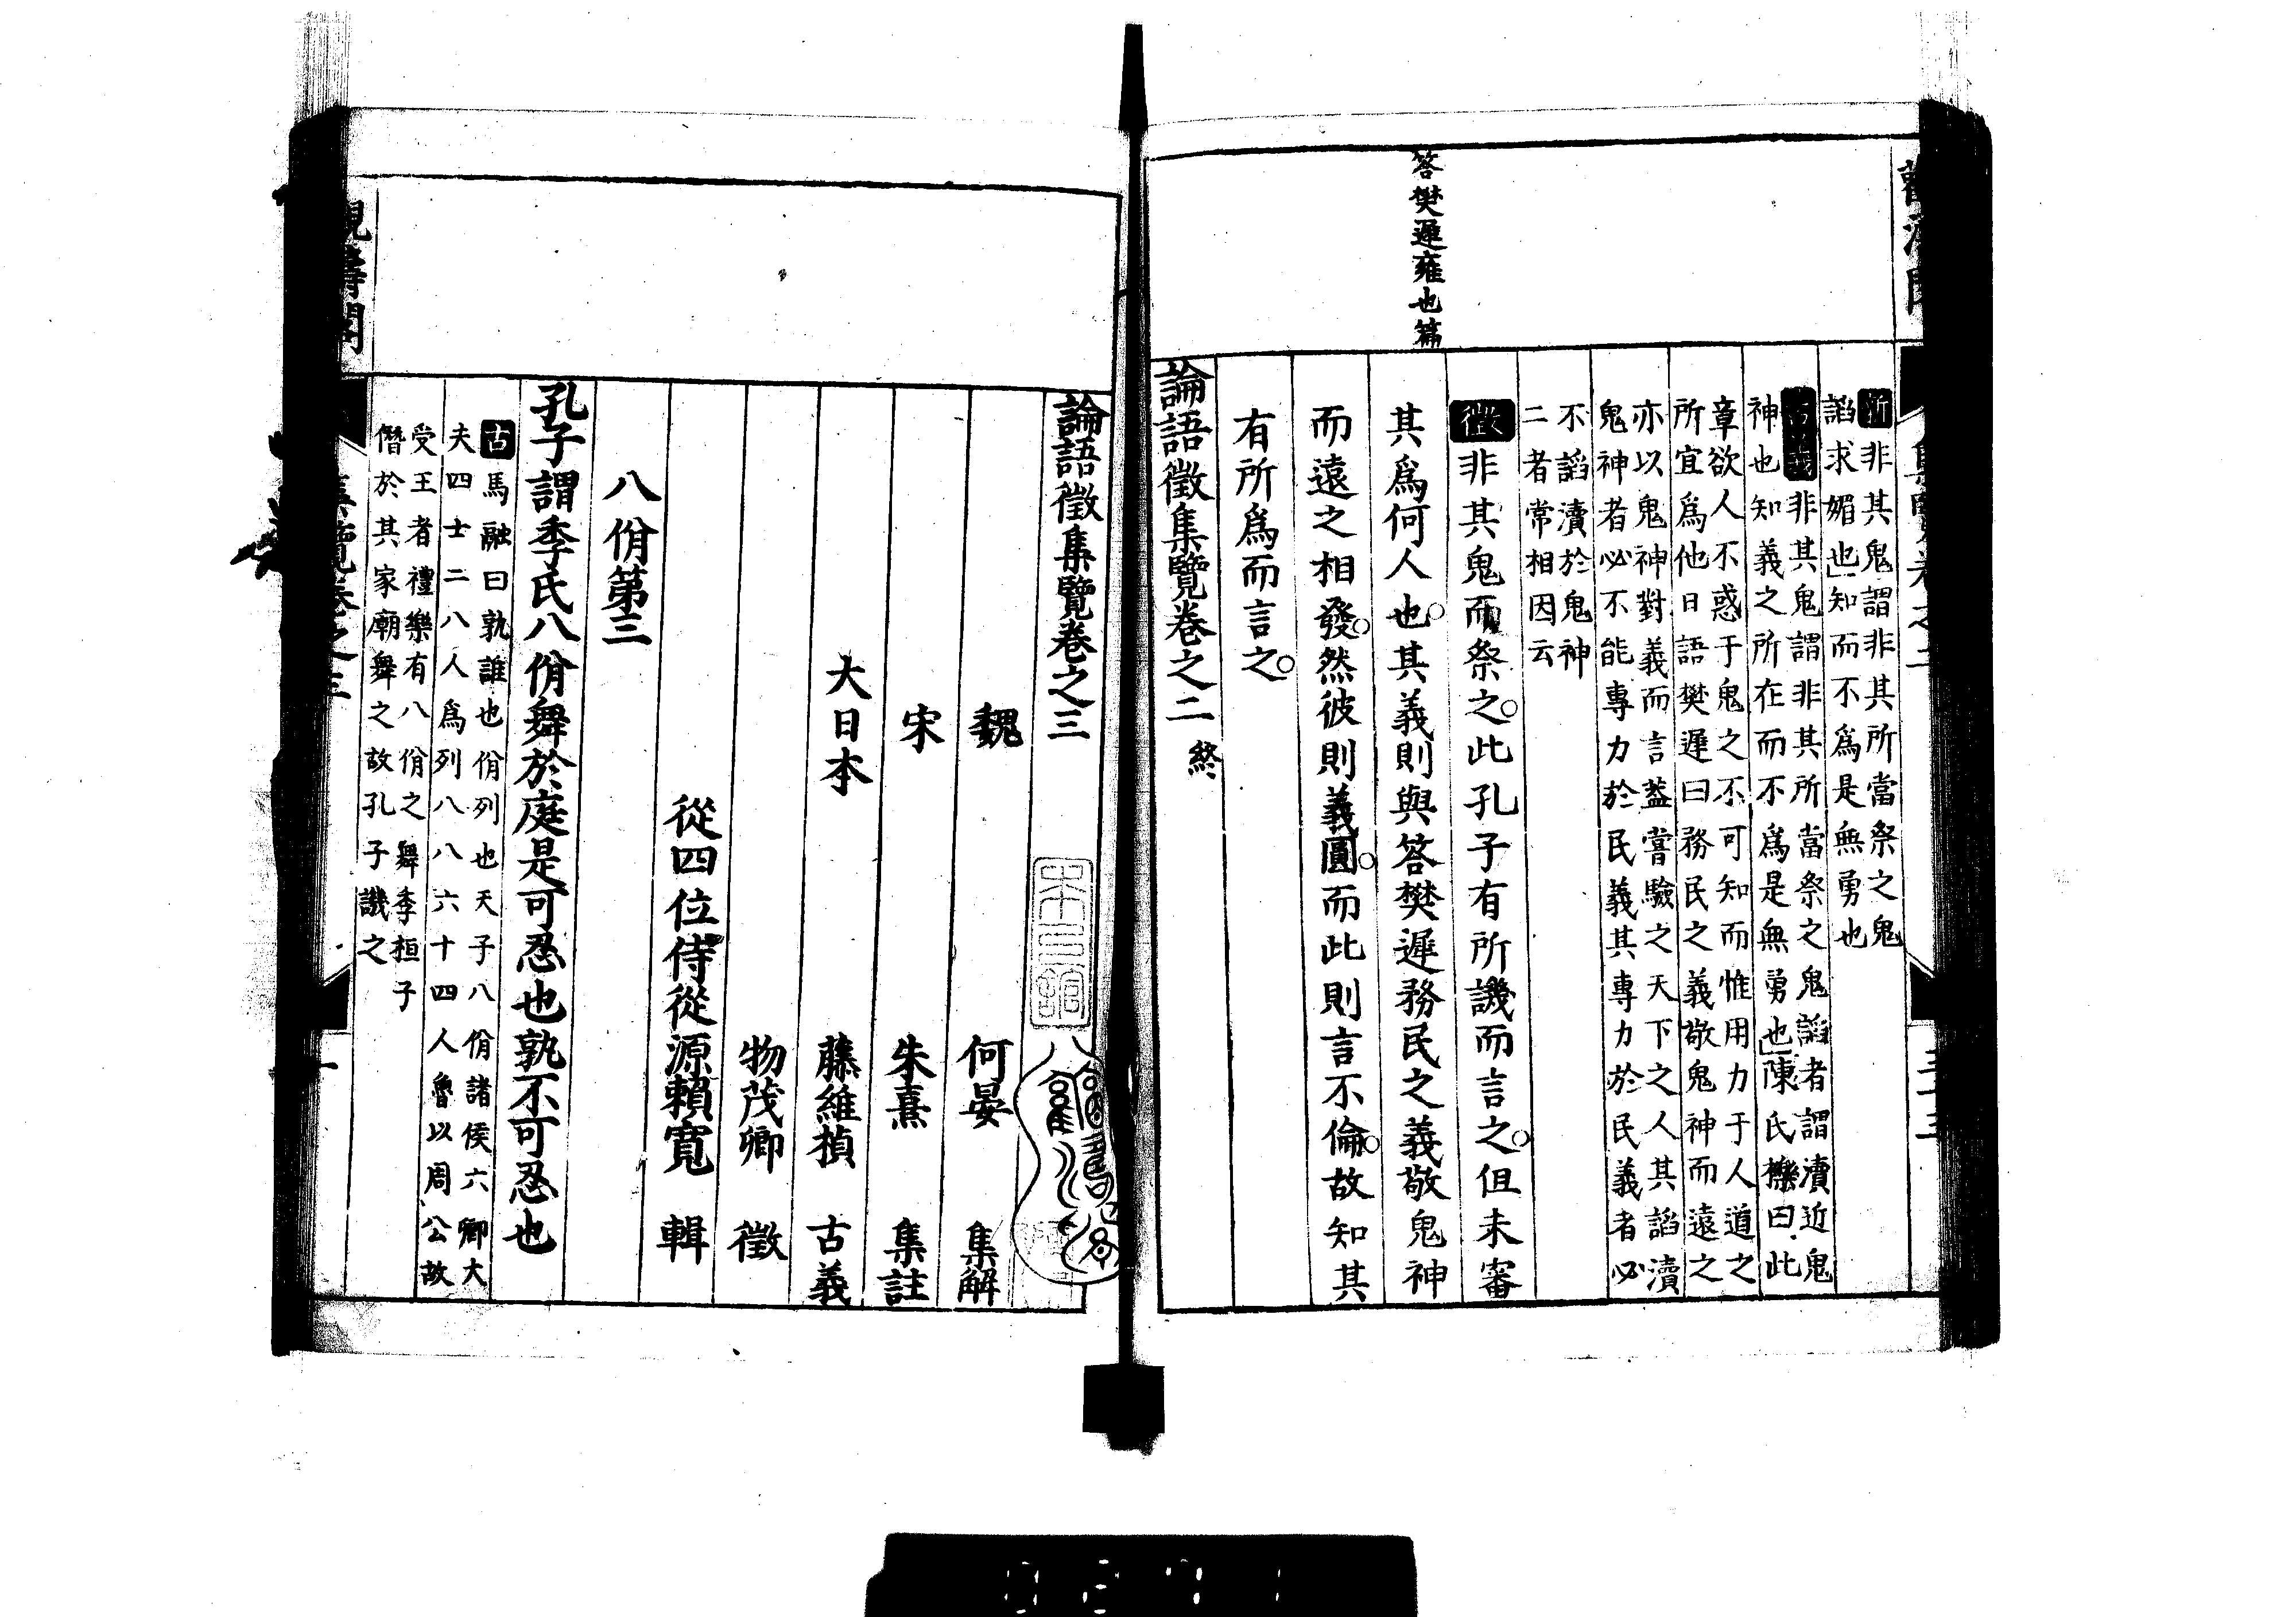 答樊遲雍也篇
新非其鬼謂非其所當祭之鬼
諂求媚也知而不為是無勇也
古義非其鬼謂非其所當祭之鬼諂者謂瀆近鬼
神也知義之所在而不為是無勇也陳氏櫟曰此
章欲人不惑于鬼之不可知而惟用力于人道之
所宜為他日語樊遲曰務民之義敬鬼神而遠之
亦以鬼神對義而言蓋嘗驗之天下之人其諂瀆
鬼神者必不能專力於民義其專力於民義者必
不諂瀆於鬼神
二者常相因云
徵非其鬼而祭之此孔子有所譏而言之但未審
其為何人也其義則與答樊遲務民之義敬鬼神
而遠之相發然彼則義圓而此則言不倫故知其
有所為而言之
論語徵集覽卷之二終
論語徵集覽卷之三
魏 何晏 集解
宋 朱熹 集註
大日本 藤維楨 古義
物茂卿 徵
從四位侍從源賴寬 輯
八佾第三
孔子謂季氏八佾舞於庭是可忍也孰不可忍也
古馬融曰孰誰也佾列也天子八佾諸侯六卿大
夫四士二八人為列八八六十四人魯以周公故
受王者禮樂有八佾之舞季桓子
僭於其家廟舞之故孔子譏之
集覽卷之三
一